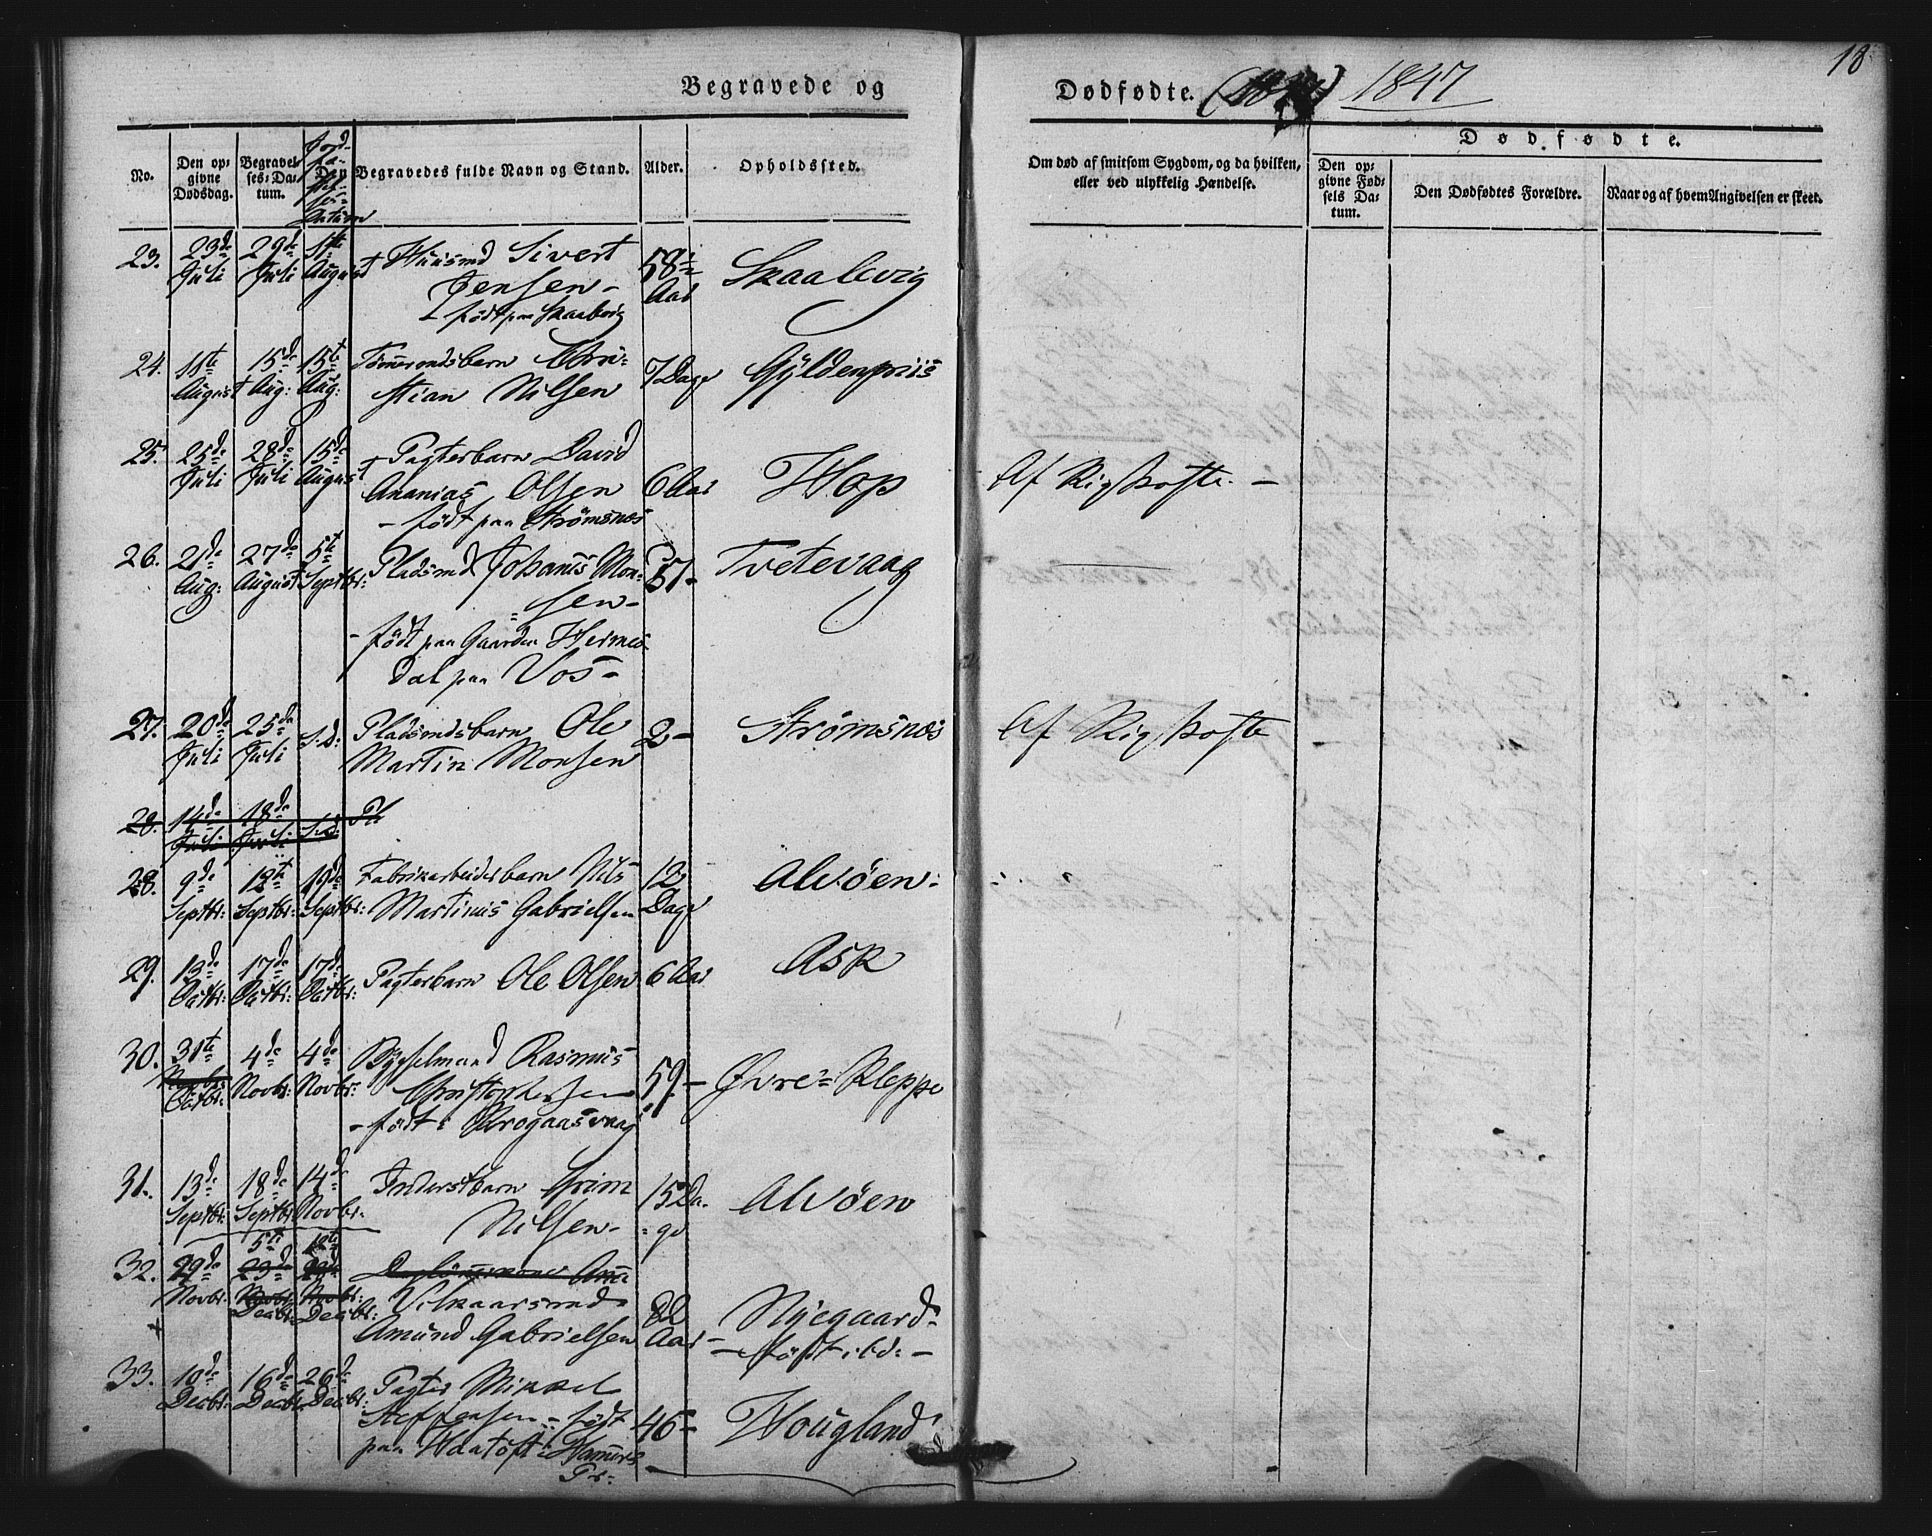 Begravede og
Dødfødte. 1847
18
No.
Den opgivne Dødsdag.
Begravelses-Datum.
Jordpaa-
Den
Datum
Begravedes fulde Navn og Stand.
Alder.
Opholdssted.
Om død af smitsom Sygdom, og da hvilken, eller ved ulykkelig Hændelse.
Dødfødte.
Den opgivne Fødsels Datum.
Den Dødfødtes Forældre.
Naar og af hvem Angivelsen er skeet.
23. 23de Juli 29de Juli 1ste August + Huusmd Sivert
Jensen – 58 Aar Skaalevig
– født paa Skaalevig
24. 11te August 15de Aug: 15te Aug: Tømmermdsbarn Chri=
stian Nilsen 7 Dage Gyldenpriis
25. 25de Juli 28de Juli 15de August + Pagterbarn David
Ananias Olsen 6 Aar Hop Af Rig Hoste. –
– født paa Strømsnæs
26. 21de Aug: 27de August 5te Septbr: Pladsmd Johannes Mon=
sen – 57 – Tvetevaag
– født paa Gaarden Hermes
dal paa Vos –
27. 20de Juli 25de Juli S.D: Pladsmdsbarn Ole
Martin Monsen 2 – Strømsnæs Af Rig Hoste
28. 14de Juli 18de Juli S.d: Pl
28. 9de Septbr: 12te Septbr: 19de Septbr: Fabrikarbeiderbarn Nils
Martinus Gabrielsen 12 Dage Alvøen:
29. 13de Octbr: 17de Octbr: 17de Octbr: Pagterbarn Ole Olsen 6 Aar Ask
30. 31te Novbr: Octbr: 4de Novbr: 4de Novbr: Bygselmand Rasmus
Christophersen 59 – Øvre Kleppe
– født i Krogaasvaag
31. 13de Septbr: 18de Septbr: 14de Novbr: Inderstbarn Grim
Nilsen – 15 Da=
ge Alvøen
32. 29de Novbr: 23de 5te Novbr: Decbr: 12te Novbr: Decbr: Anne
Vilkaarsmd
Amund Gabrielsen 82 Aar – Nyegaard
– født ibd: –
33. 10de Decbr: 16de Decbr: 26de Decbr: Pagter Mikkel
Steffensen – født 46 – Hougland
paa Haatoft i Hammers
Pr: